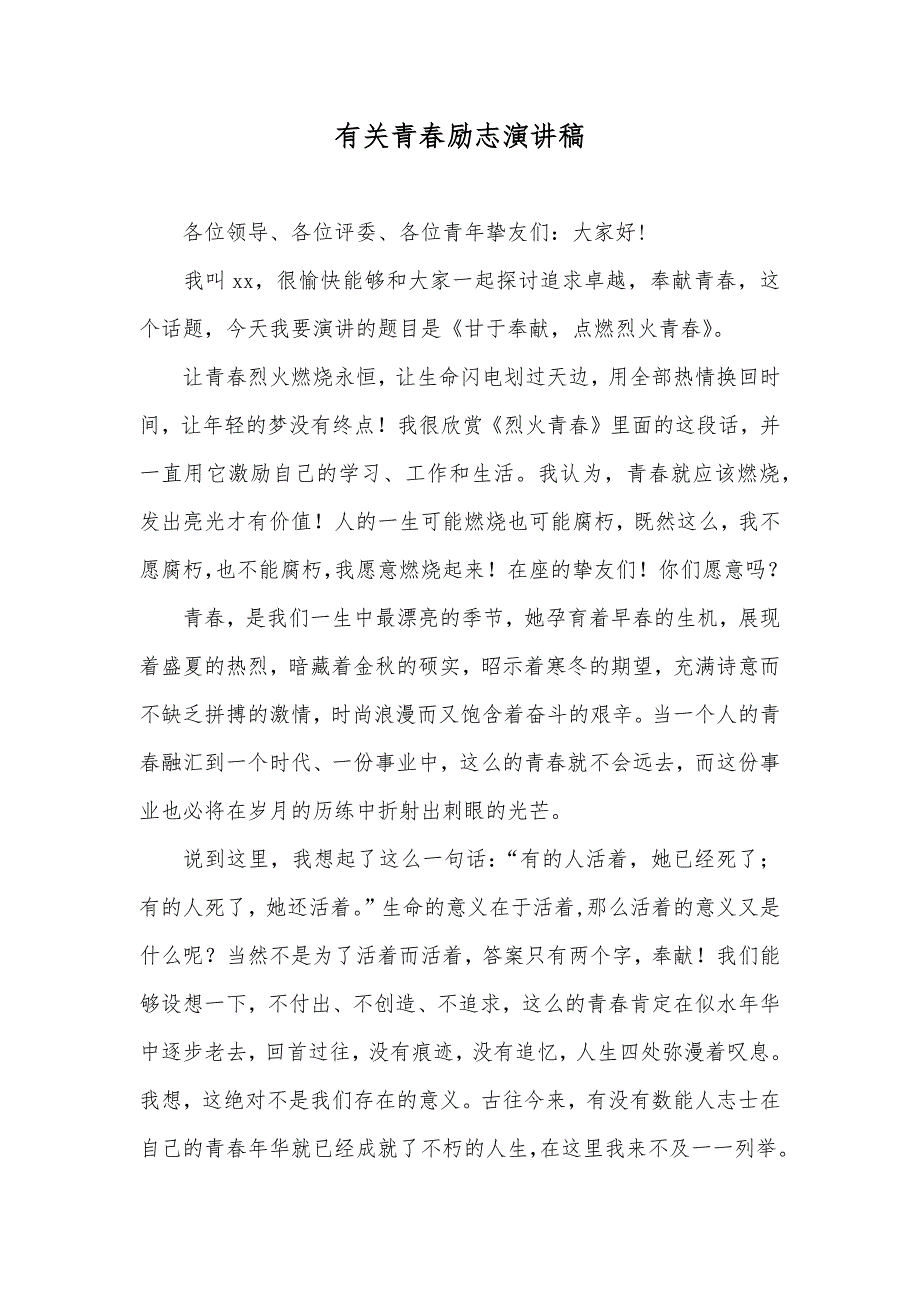 有关青春励志演讲稿
各位领导、各位评委、各位青年挚友们：大家好！
我叫 xx，很愉快能够和大家一起探讨追求卓越，奉献青春，这
个话题，今天我要演讲的题目是《甘于奉献，点燃烈火青春》。
让青春烈火燃烧永恒，让生命闪电划过天边，用全部热情换回时
间，让年轻的梦没有终点！我很欣赏《烈火青春》里面的这段话，并
一直用它激励自己的学习、工作和生活。我认为，青春就应该燃烧，
发出亮光才有价值！人的一生可能燃烧也可能腐朽，既然这么，我不
愿腐朽，也不能腐朽，我愿意燃烧起来！在座的挚友们！你们愿意吗？
青春，是我们一生中最漂亮的季节，她孕育着早春的生机，展现
着盛夏的热烈，暗藏着金秋的硕实，昭示着寒冬的期望，充满诗意而
不缺乏拼搏的激情，时尚浪漫而又饱含着奋斗的艰辛。当一个人的青
春融汇到一个时代、一份事业中，这么的青春就不会远去，而这份事
业也必将在岁月的历练中折射出刺眼的光芒。
说到这里，我想起了这么一句话：“有的人活着，她已经死了；
有的人死了，她还活着。”生命的意义在于活着，那么活着的意义又是
什么呢？当然不是为了活着而活着，答案只有两个字，奉献！我们能
够设想一下，不付出、不创造、不追求，这么的青春肯定在似水年华
中逐步老去，回首过往，没有痕迹，没有追忆，人生四处弥漫着叹息。
我想，这绝对不是我们存在的意义。古往今来，有没有数能人志士在
自己的青春年华就已经成就了不朽的人生，在这里我来不及一一列举。